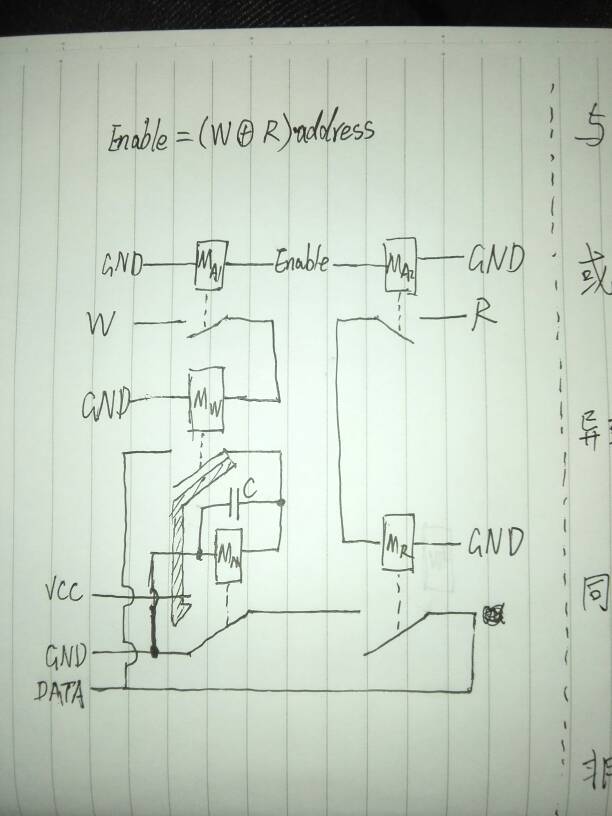 Enable = (W ⊕ R)·address
与
GND MA1 Enable MA2 GND
或
W R
GND MW
异
C
MM MR GND
VCC
同
GND
DATA
非